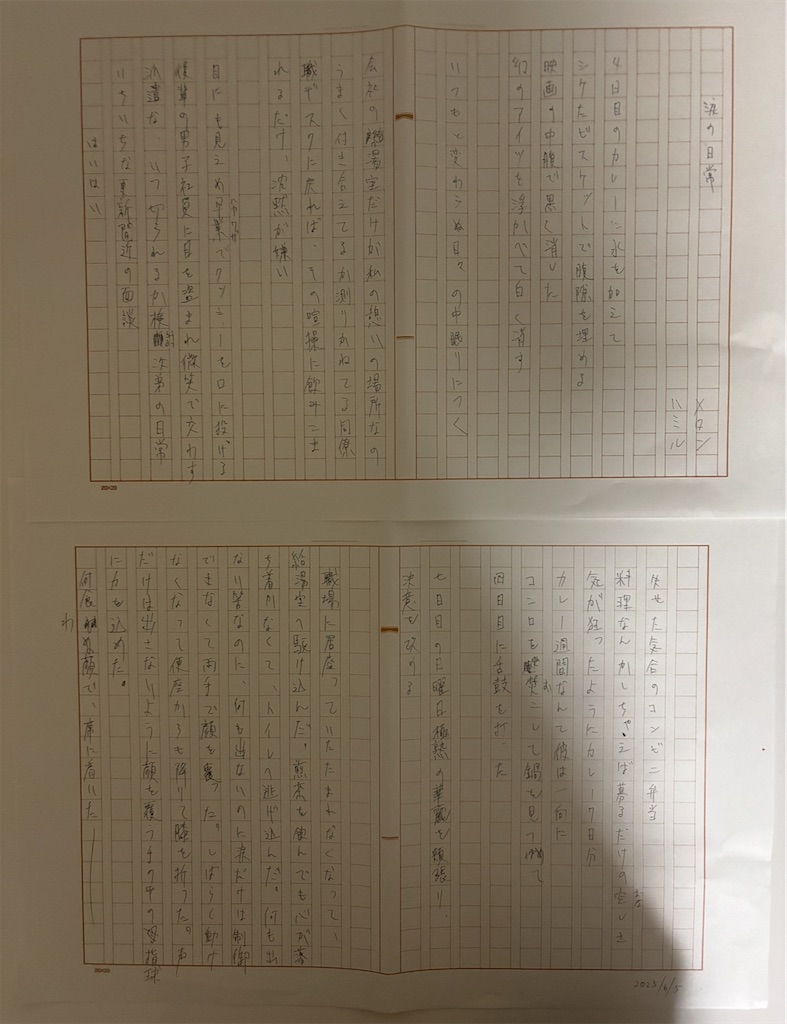 涙の日常
メタン
ハミル
4日目のカレーに水を加えて
シケたビスケットで腹隙を埋める
映画の中腹で黒く消した
幻のアイツを浮かべて白く消す
いつもと変わらぬ日々の中眠りにつく
会社の給湯室だけが私の憩いの場所なの
うまく付き合えてるか測りかねてる同僚
職デスクに戻れば、その喧操に飲みこま
れるだけ、沈黙が嫌い
目にも見えぬ早業でクッキーを口に投げる
後輩の男子社員に目を盗まれ微笑で交わす
派遣な、いつ切られるか検討次第の日常
いちいちな更新間近の面談
はいはい
失せた気合のコンビニ弁当
料理なんかしちゃえば募るだけの空しさ
気が狂ったようにカレー7日分
カレー週間なんて彼は一向に
コンロを焚こして鍋を見つめて
四日目に舌鼓を打った
七日目の日曜日極熱の華麗を頬張り、
決意を改める
職場に居座っていたたまれなくなって、
給湯室へ駆け込んだ。煎茶を飲んでも心が落
ち着かなくて、トイレへ逃げ込んだ。何も出
ない筈なのに、何も出ないのに涙だけは制御
できなくて両手で顔を覆った。しばらく動け
なくなって便座からも降りて膝を折った。声
だけは出さないように顔を覆つ手の中の母指球
に力を込めた。
何食わぬ顔で、席に着いた―――
2023/6/5